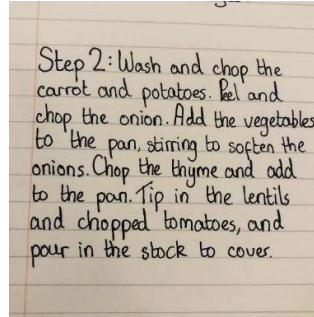 Step 2: Wash and chop the
carrot and potatoes. Peel and
chop the onion. Add the vegetables
to the pan, stirring to soften the
onions. Chop the thyme and add
to the pan. Tip in the lentils
and chopped tomatoes, and
pour in the stock to cover.